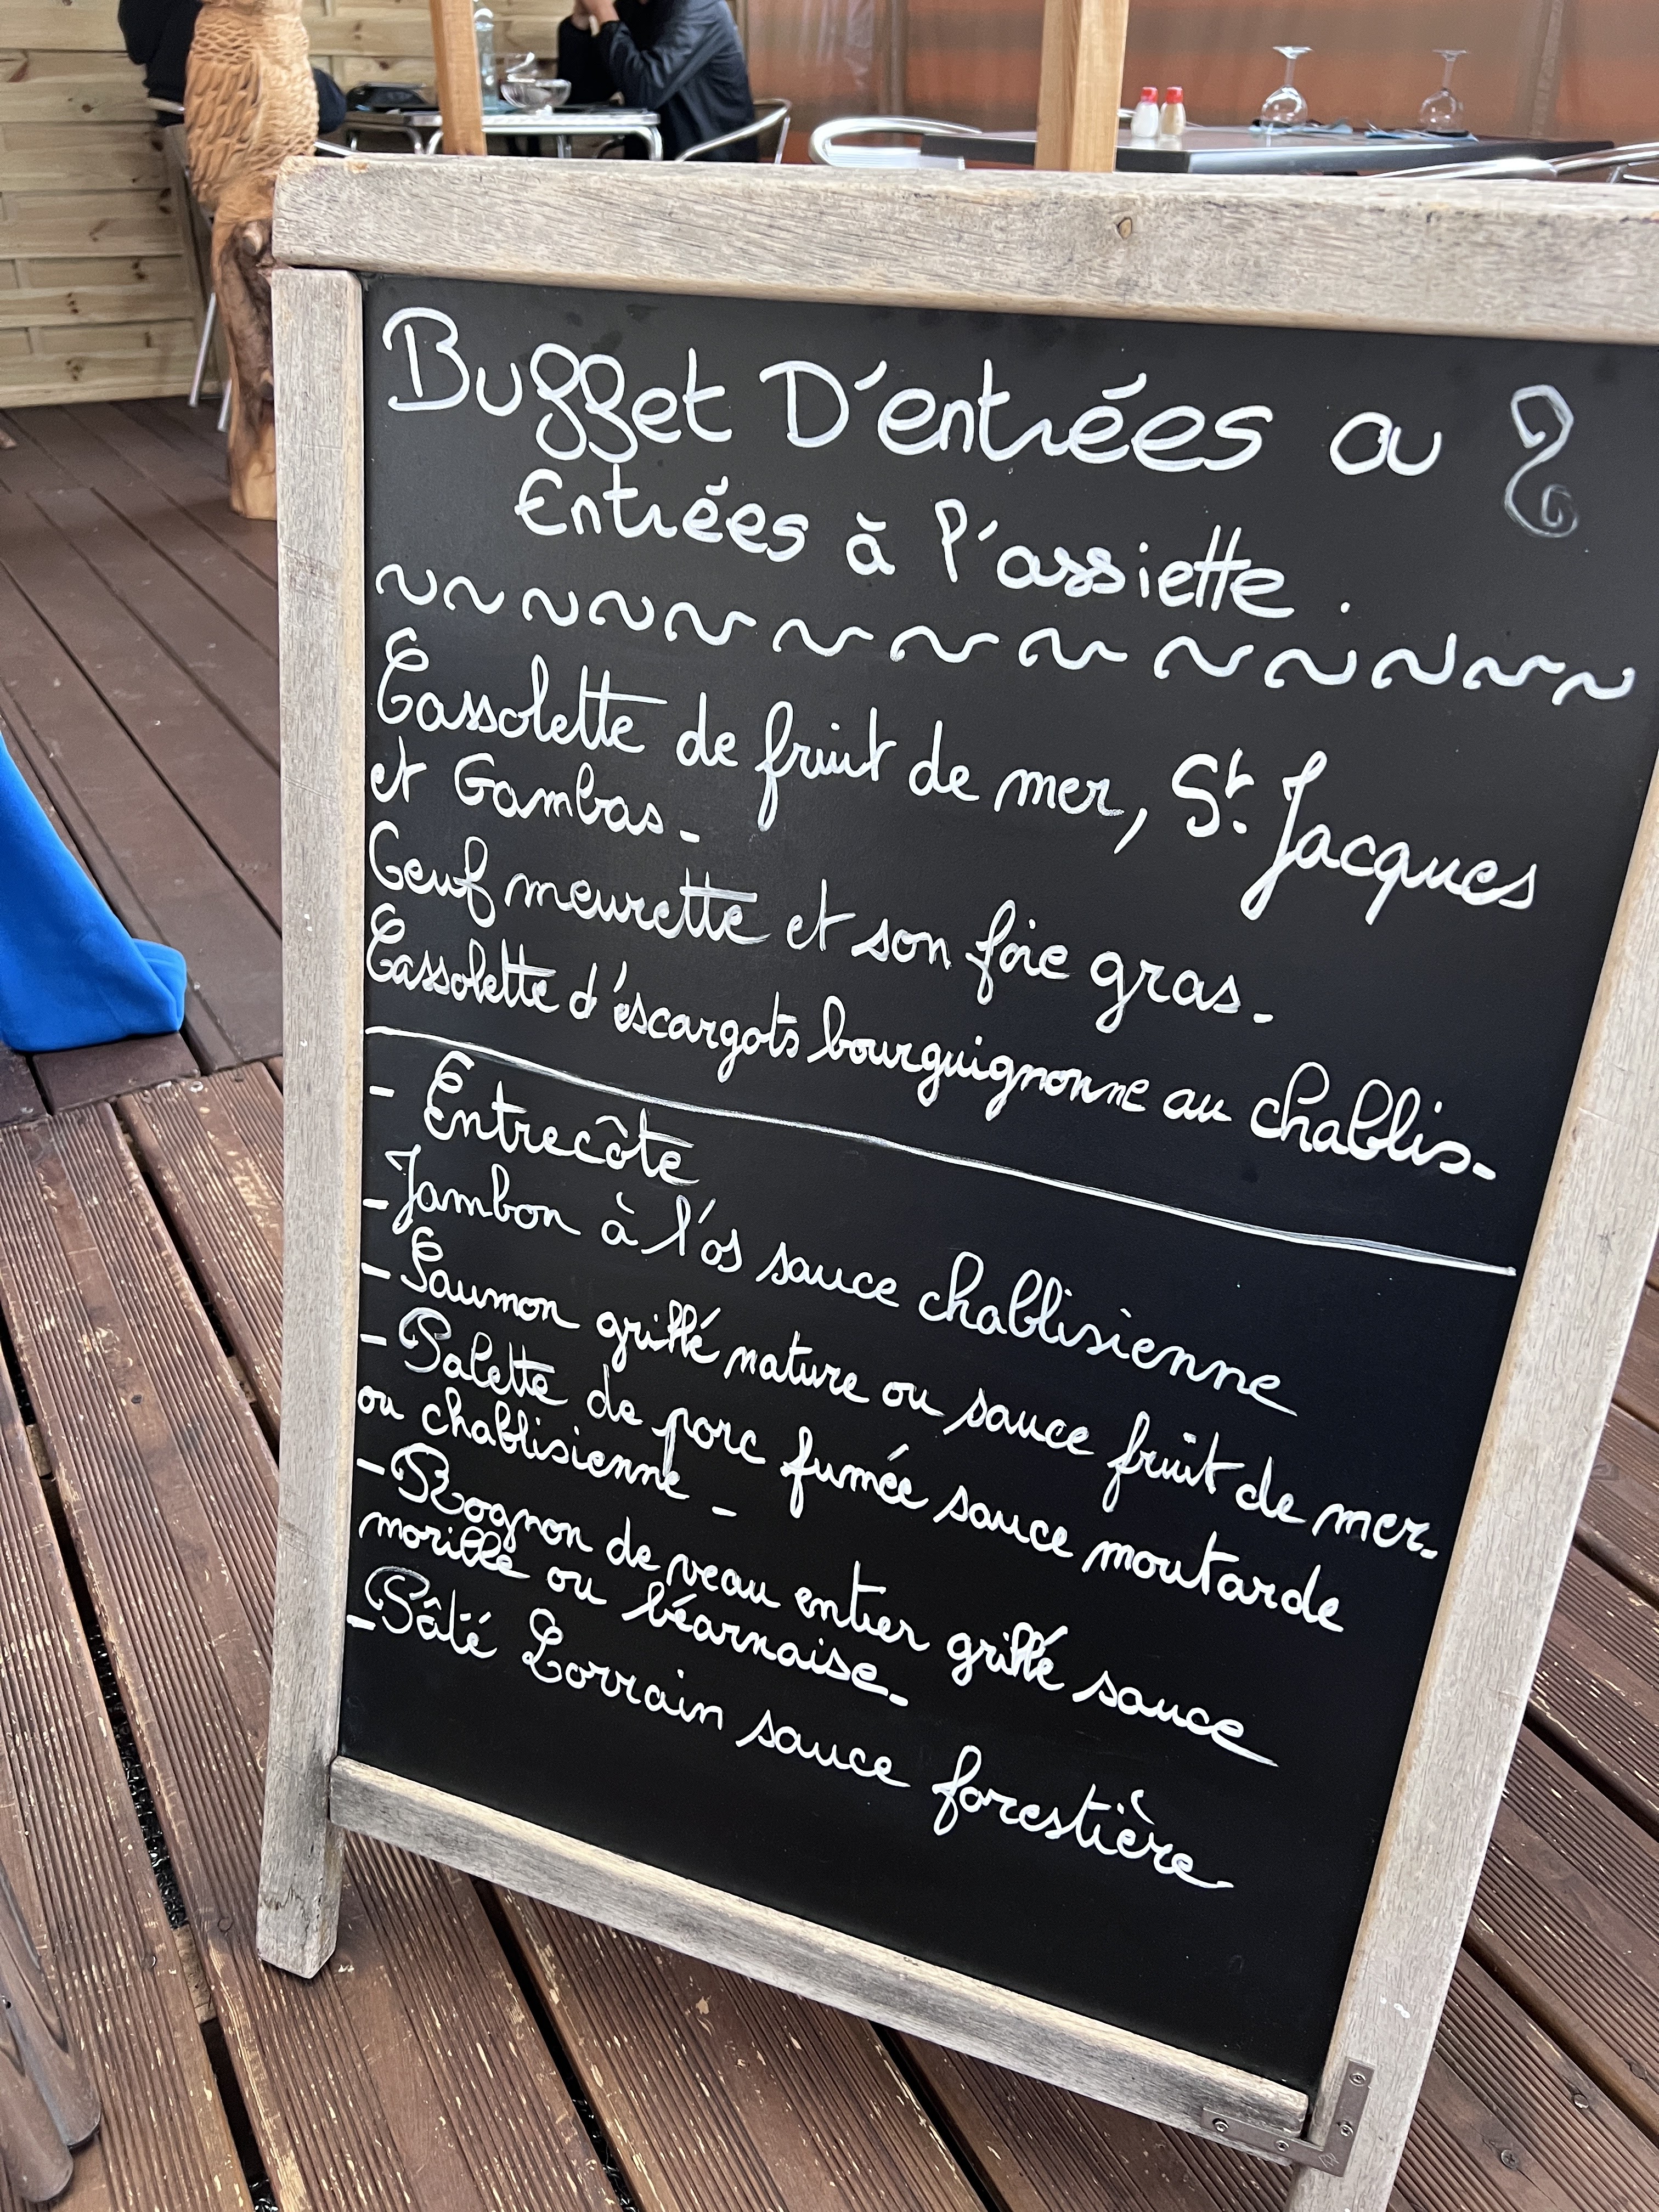 Buffet D'entrées ou
Entrées à l'assiette.
Cassolette de fruit de mer, St. Jacques
et Gambas.
Oeuf meurette et son foie gras.
Cassolette d'escargots bourguignonne au chablis.
- Entrecôte
- Jambon à l'os sauce chablisienne
- Saumon grillé nature ou sauce fruit de mer.
- Palette de porc fumée sauce moutarde
ou chablisienne.
- Rognon de veau entier grillé sauce
morille ou béarnaise.
- Pâté Lorrain sauce forestière